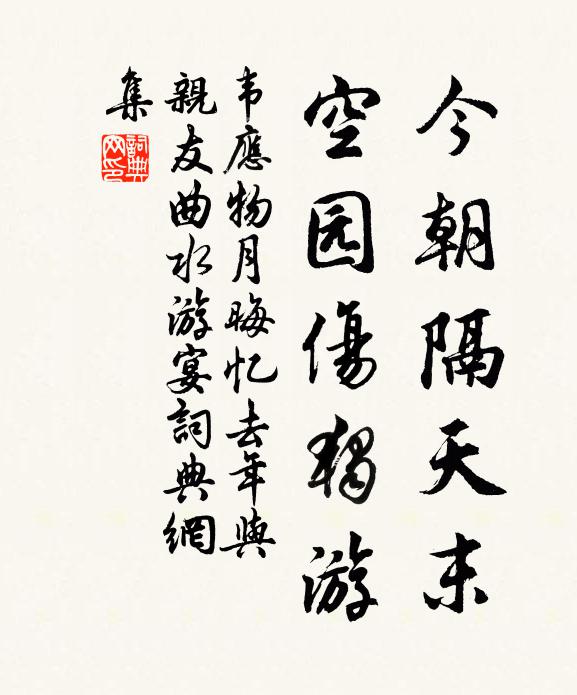 今朝隔天末
空园傷獨游
韦應物月晦忆去年與
親友曲水游宴詞典網
集
詞典网印